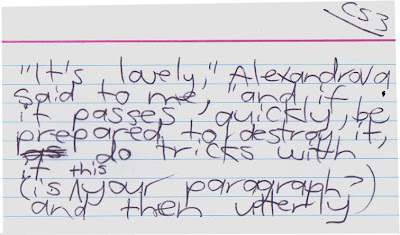 CS3
"It's lovely," Alexandrova
said to me, "and if
it passes quickly, be
prepared to destroy it,
do tricks with
it
(is this your paragraph?)
and then utterly